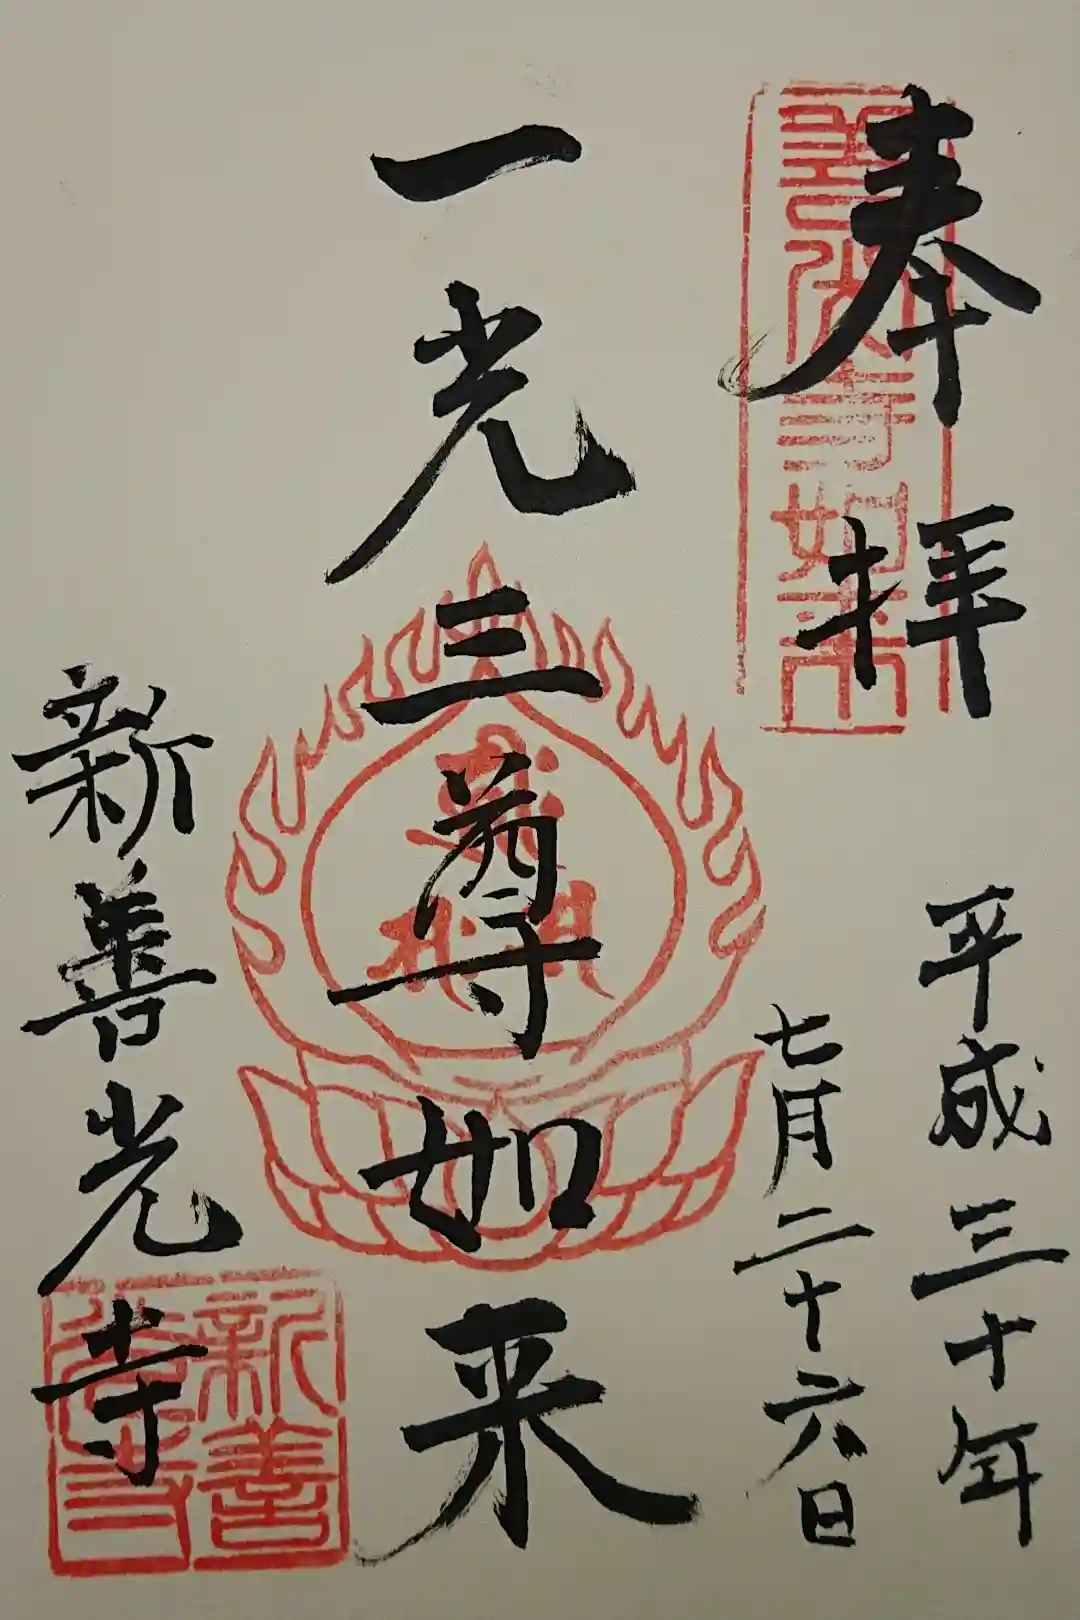 奉拝
平成三十年
七月二十六日
一光三尊如来
新善光寺
善光寺如来
新善光寺